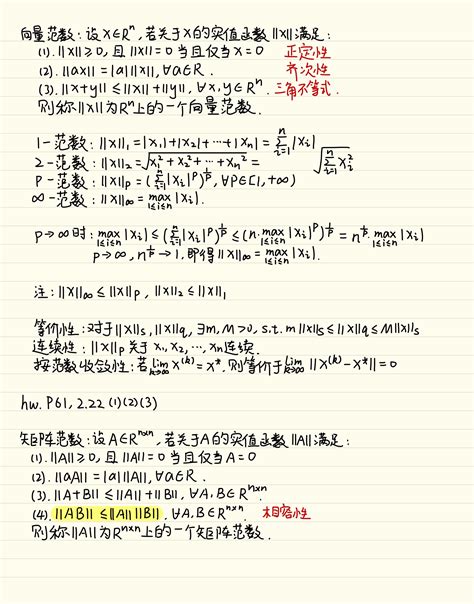 向量范数：设X∈Rⁿ，若关于X的实值函数||X||满足：
(1). ||X||≥0，且||X||=0当且仅当X=0 正定性
(2). ||aX||=|a|||X||，∀a∈R. 齐次性
(3). ||X+y||≤||X||+||y||，∀X,y∈Rⁿ. 三角不等式.
则称||X||为Rⁿ上的一个向量范数.
1-范数：||X||₁=|X₁|+|X₂|+···+|Xₙ|=∑ᵢ₌₁ⁿ|Xᵢ|
2-范数：||X||₂=√(X₁²+X₂²+···+Xₙ²)=√(∑ᵢ₌₁ⁿXᵢ²)
P-范数：||X||p=(∑ᵢ₌₁ⁿ|Xᵢ|^P)^(1/P)，∀P∈[1,+∞)
∞-范数：||X||∞=max_{1≤i≤n}|Xᵢ|.
P→∞时：max_{1≤i≤n}|Xᵢ|≤(∑ᵢ₌₁ⁿ|Xᵢ|^P)^(1/P)≤(n·max_{1≤i≤n}|Xᵢ|^P)^(1/P)=n^(1/P)max_{1≤i≤n}|Xᵢ|
P→∞，n^(1/P)→1，即得||X||∞=max_{1≤i≤n}|Xᵢ|.
注：||X||∞≤||X||p，||X||₂≤||X||₁
等价性：对于||X||s,||X||q，∃m,M>0, s.t. m||X||s≤||X||q≤M||X||s
连续性：||X||p关于X₁,X₂,···,Xₙ连续.
按范数收敛性：若lim_{k→∞}X^(k)=X*，则等价于lim_{k→∞}||X^(k)-X*||=0
hw. P61, 2.22 (1)(2)(3)
矩阵范数：设A∈Rⁿˣⁿ，若关于A的实值函数||A||满足：
(1). ||A||≥0，且||A||=0当且仅当A=0
(2). ||aA||=|a|||A||，∀a∈R.
(3). ||A+B||≤||A||+||B||，∀A,B∈Rⁿˣⁿ.
(4). ||AB||≤||A||||B||，∀A,B∈Rⁿˣⁿ. 相容性
则称||A||为Rⁿˣⁿ上的一个矩阵范数.